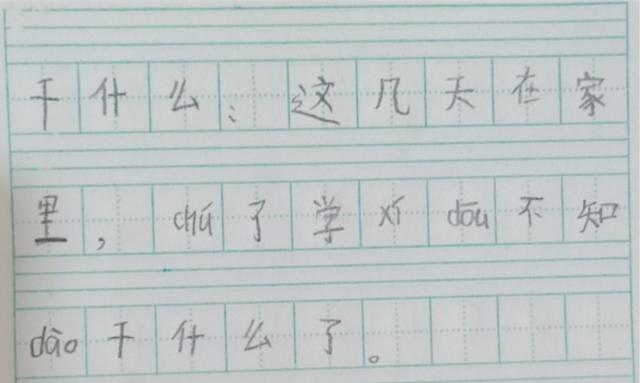 干什么：这几天在家
里，chú了学xí dōu不知
dào干什么了。